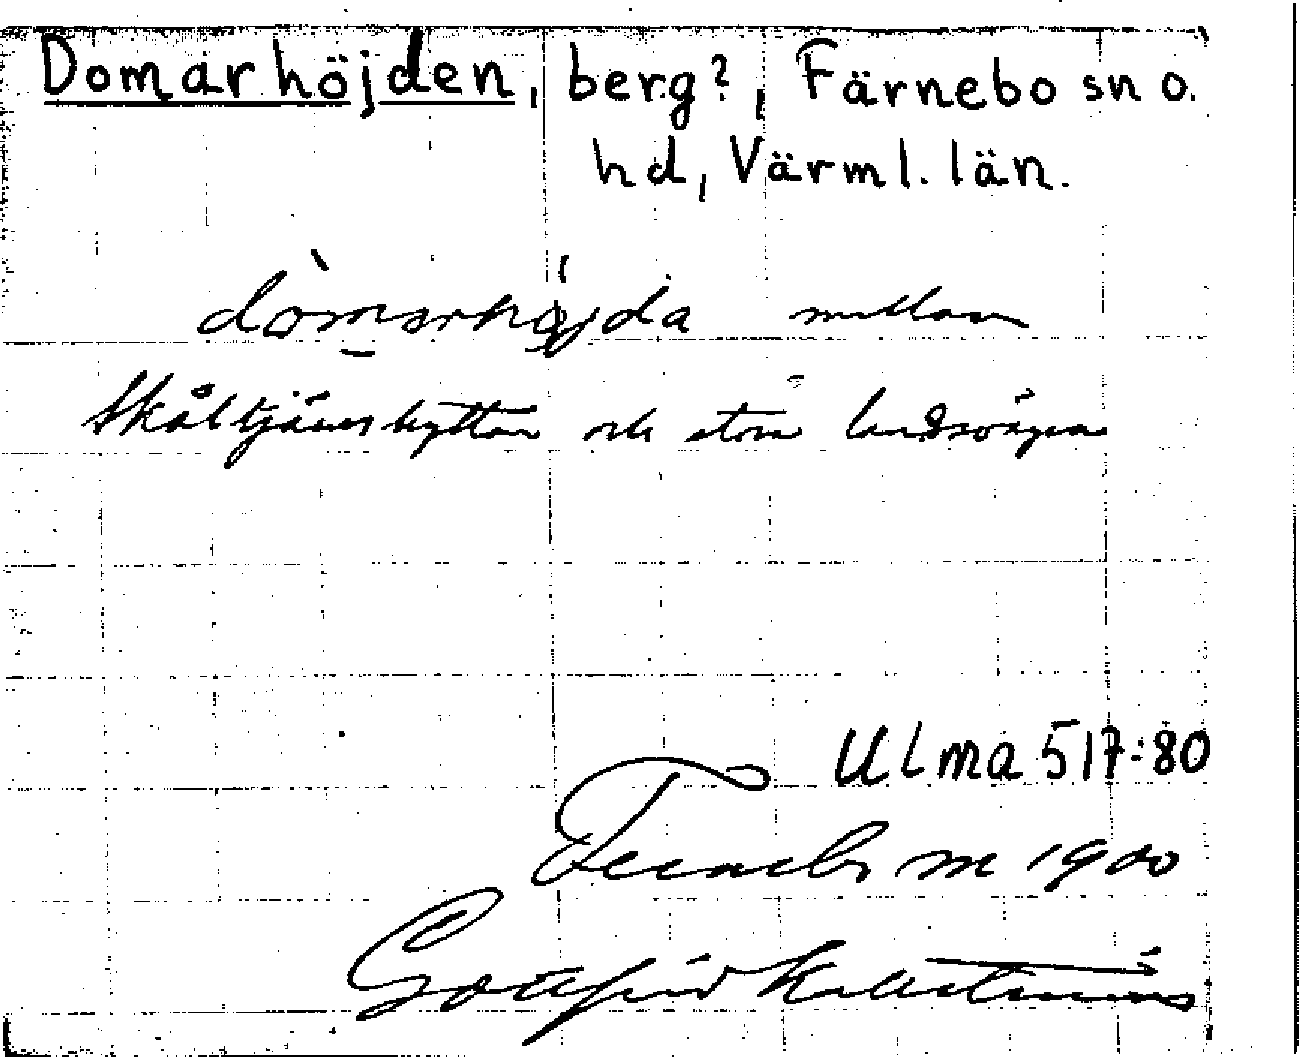 Domarhöjden, berg?, Färnebo sn o.
hd, Värml. län.
dòmarhöjda mellan
Skåltjärnshyttan och stora landsvägen
Ulma 517:80
Fernebo m 1900
Gottfrid Kallstenius